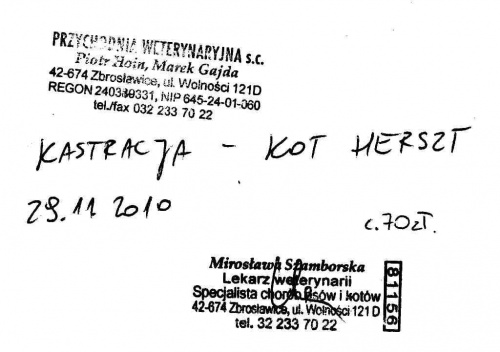 PRZYCHODNIA WETERYNARYJNA s.c.
Piotr Hoin, Marek Gajda
42-674 Zbrosławice, ul. Wolności 121D
REGON 240389331, NIP 645-24-01-060
tel./fax 032 233 70 22
KASTRACJA - KOT HERSZT
29.11 2010
c.70zł.
Mirosława Szamborska
Lekarz weterynarii
Specjalista chorób psów i kotów
42-674 Zbrosławice, ul. Wolności 121 D
tel. 32 233 70 22
81156